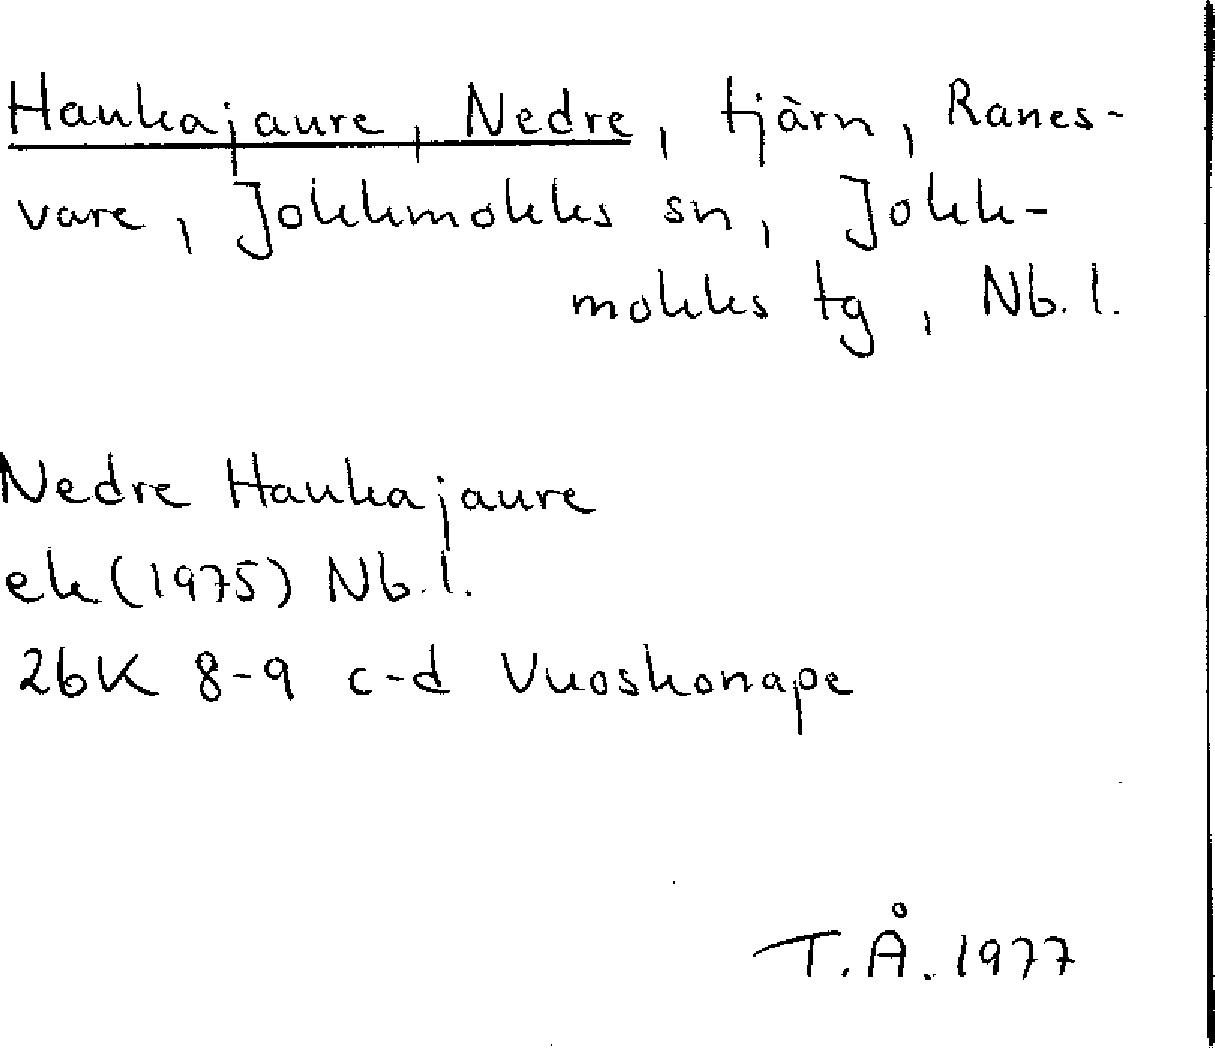 Haukajaure, Nedre, tjärn, Ranes-
vare, Jokkmokks sn, Jokk-
mokks tg, Nb. l.
Nedre Haukajaure
ek (1975) Nb. l.
26K 8-9 c-d Vuoskonape
T. Å. 1977